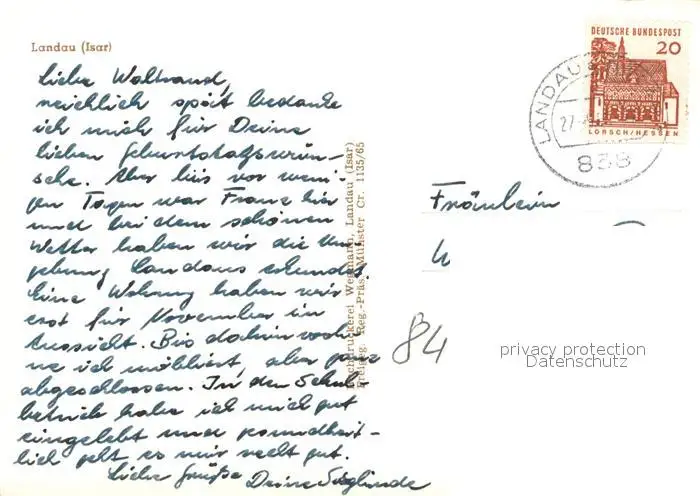 Landau (Isar)
Liebe Waltraud,
reichlich spät bedanke
ich mich für Deine
lieben Geburtstagswün-
sche. Aber bis vor weni-
gen Tagen war Franz hier
und bei dem schönen
Wetter haben wir die Um-
gebung Landaus erkundet.
Eine Wohnung haben wir
erst für November in
Aussicht. Bis dahin woh-
ne ich möbliert, aber ganz
abgeschlossen. In den Schul-
betrieb habe ich mich gut
eingelebt und gesundheit-
lich geht es mir recht gut.
Liebe Grüße Deine Sieglinde
Buchdruckerei Wegmann, Landau (Isar)
Freigeg. Reg.-Präs. Münster Cr. 1135/65
DEUTSCHE BUNDESPOST
20
LORSCH/HESSEN
LANDAU
27.
Fräulein
84
privacy protection
Datenschutz